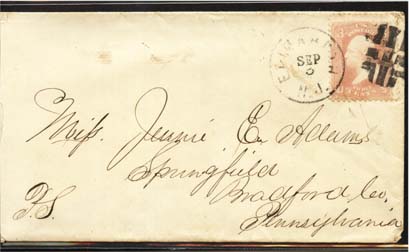 ELIZABETH
SEP
3
N.J.
Miss. Jennie E. Adams
Springfield
Bradford Co.
Pennsylvania